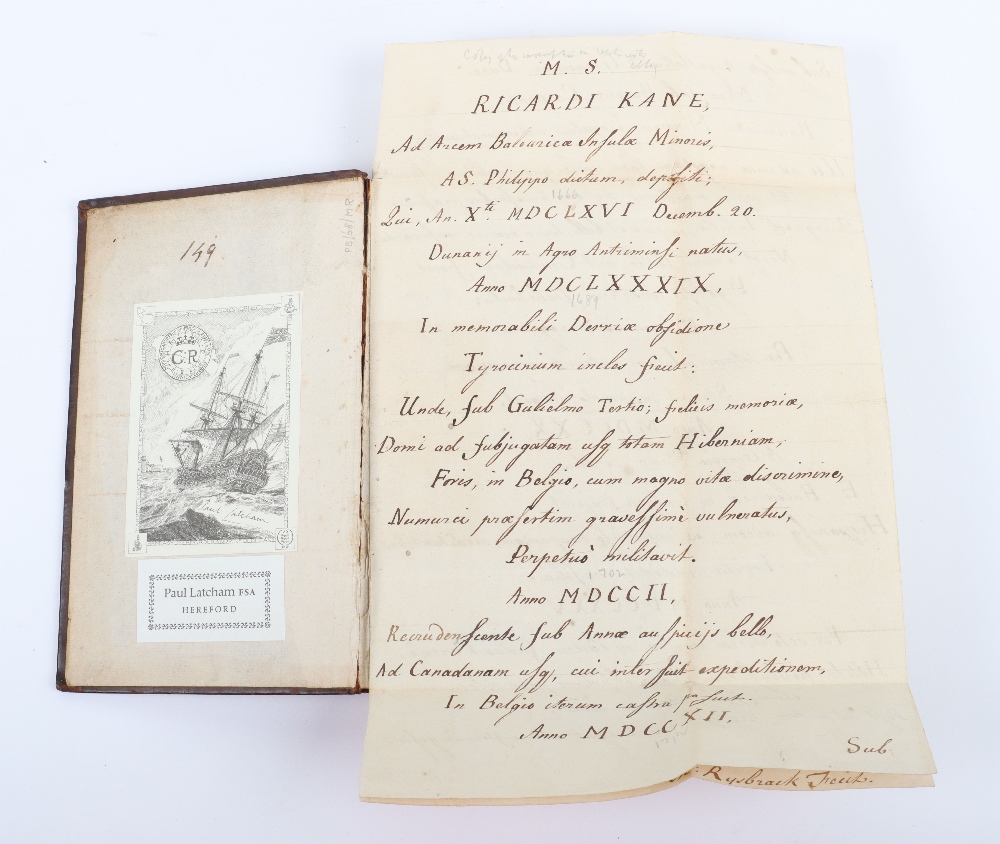 149.
PB/GB/MR
C:R
Paul Latcham
Paul Latcham FSA
HEREFORD
M. S.
RICARDI KANE,
Ad Arcem Balearicæ Insulæ Minoris,
A S. Philippo dictam, depositi;
1666
Qui, An. Xti. MDCLXVI Decemb. 20.
Dunanij in Agro Antrimensi natus,
Anno MDCLXXXIX,
1689
In memorabili Derriæ obsidione
Tyrocinium incles fecit:
Unde, sub Gulielmo Tertio; felicis memoriæ,
Domi ad subjugatam usq totam Hiberniam,
Foris, in Belgio, cum magno vitæ discrimine,
Namurci præsertim gravessimè vulneratus,
Perpetuò militavit.
1702
Anno MDCCII,
Recrudenscente sub Annæ auspicijs bello,
Ad Canadanam usq, cui interfuit expeditionem,
In Belgio iterum castra fuit.
Anno MDCCXII,
Sub
Rysbrack Fecit.